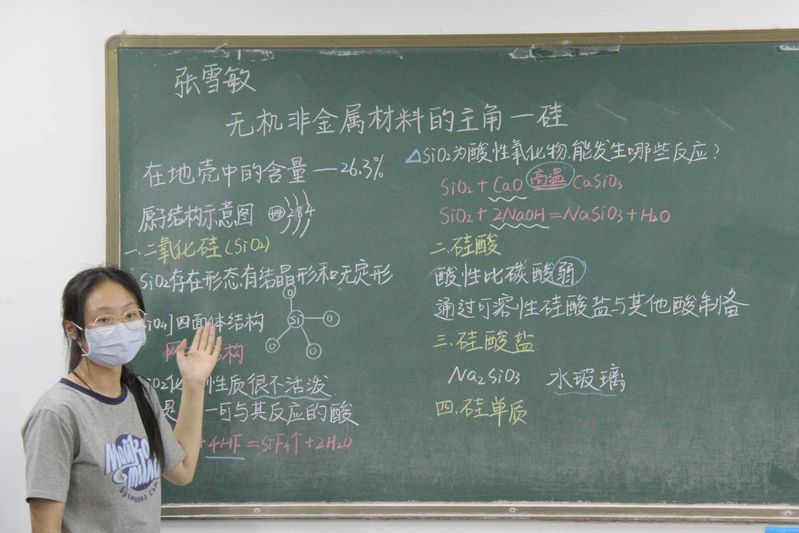 张雪敏
无机非金属材料的主角—硅
在地壳中的含量—26.3%
原子结构示意图 +14 2 8 4
一.二氧化硅(SiO2)
SiO2存在形态:有结晶形和无定形
iO4]四面体结构
Si
O
O
O
O
构
iO2化 性质很不活泼
一可与其反应的酸
+4HF=SiF4↑+2H2O
△SiO2为酸性氧化物.能发生哪些反应?
SiO2+CaO 高温 CaSiO3
SiO2+2NaOH=NaSiO3+H2O
二.硅酸
酸性比碳酸弱
通过可溶性硅酸盐与其他酸制备
三.硅酸盐
Na2SiO3 水玻璃
四.硅单质
Maiko